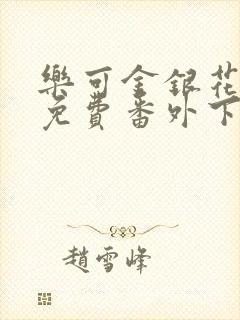 樂可金銀花
免費番外下
趙雪峰